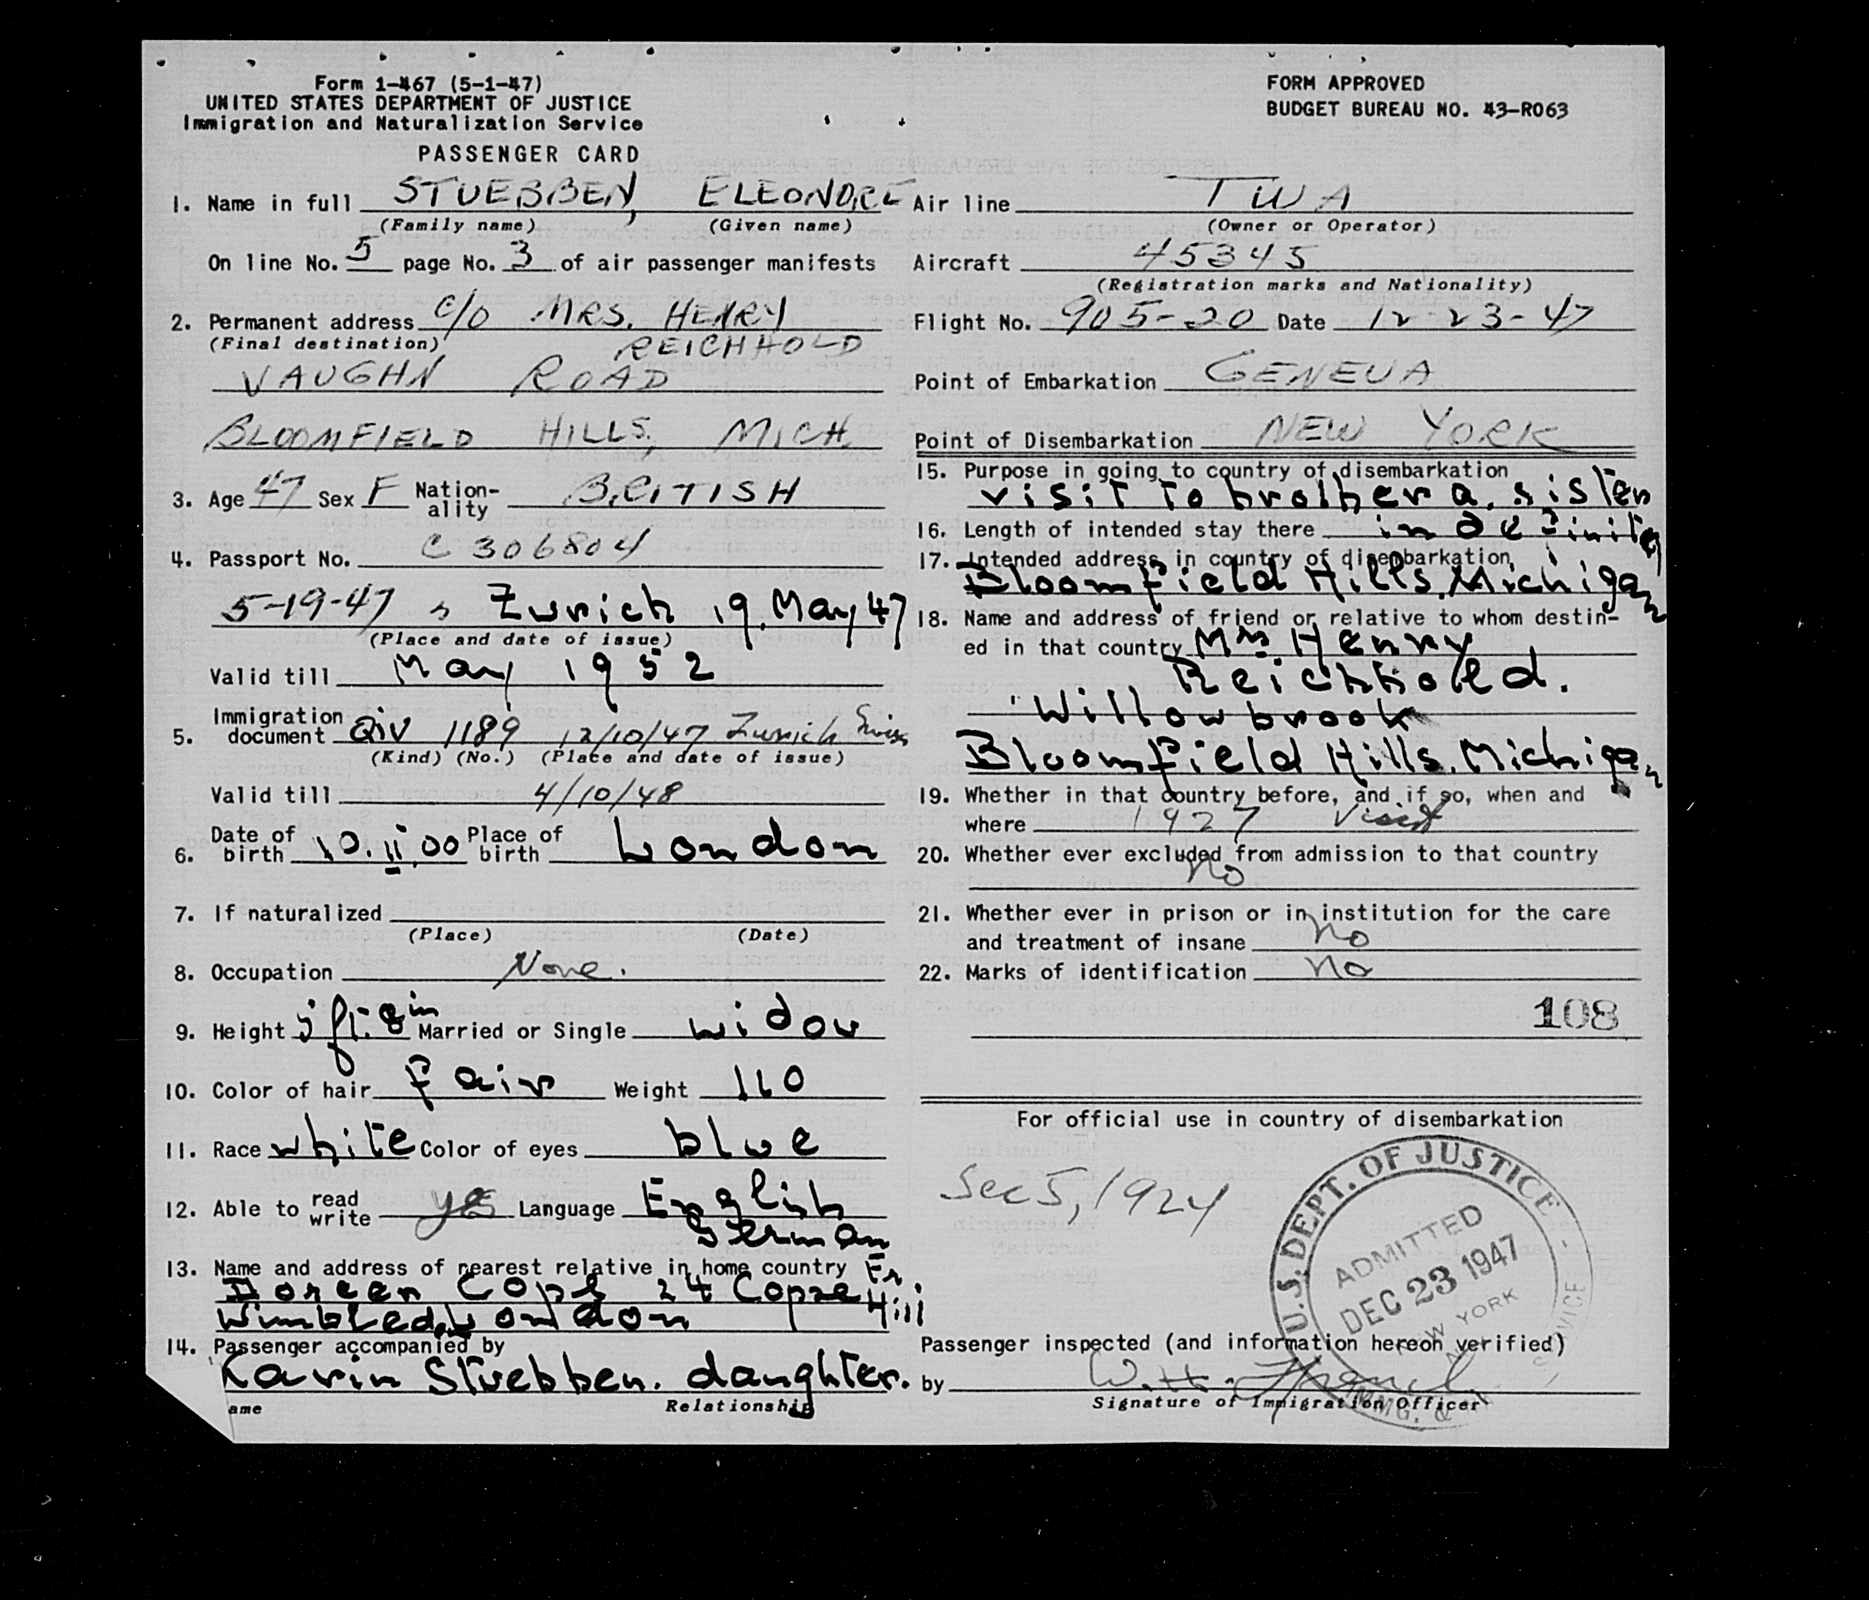 Form 1-467 (5-1-47)
UNITED STATES DEPARTMENT OF JUSTICE
Immigration and Naturalization Service
PASSENGER CARD
FORM APPROVED
BUDGET BUREAU NO. 43-R063
1. Name in full STUEBBEN, ELEONORE
(Family name) (Given name)
On line No. 5 page No. 3 of air passenger manifests
2. Permanent address c/o MRS. HENRY
(Final destination) REICHHOLD
VAUGHN ROAD
BLOOMFIELD HILLS, MICH.
3. Age 47 Sex F Nation-ality BRITISH
4. Passport No. C 306804
5-19-47 Zurich 19. May 47
(Place and date of issue)
Valid till May 1952
5. Immigration document QIV 1189 12/10/47 Zurich Swiss
(Kind) (No.) (Place and date of issue)
Valid till 4/10/48
6. Date of birth 10.II.00 Place of birth London
7. If naturalized
(Place) (Date)
8. Occupation None.
9. Height 5 ft. 8 in Married or Single widow
10. Color of hair fair Weight 110
11. Race white Color of eyes blue
12. Able to read write yes Language English
German
13. Name and address of nearest relative in home country Fr.
Doreen 24 Copse Hill
Wimbled. London
14. Passenger accompanied by
Karin Stuebben. daughter.
ame Relationship
Air line TWA
(Owner or Operator)
Aircraft 45345
(Registration marks and Nationality)
Flight No. 905-20 Date 12-23-47
Point of Embarkation GENEVA
Point of Disembarkation NEW YORK
15. Purpose in going to country of disembarkation
visit to brother a. sister
16. Length of intended stay there indefinitely
17. Intended address in country of disembarkation
Bloomfield Hills. Michigan
18. Name and address of friend or relative to whom destin-
ed in that country Mrs Henry
Reichhold.
Willowbrook
Bloomfield Hills. Michigan
19. Whether in that country before, and if so, when and
where 1927 Visit
20. Whether ever excluded from admission to that country
No
21. Whether ever in prison or in institution for the care
and treatment of insane No
22. Marks of identification No
108
For official use in country of disembarkation
Sec 5, 1924
U.S. DEPT. OF JUSTICE
ADMITTED
DEC 23 1947
NEW YORK
IMMG. & SERVICE
Passenger inspected (and information hereon verified)
by W. H.
Signature of Immigration Officer